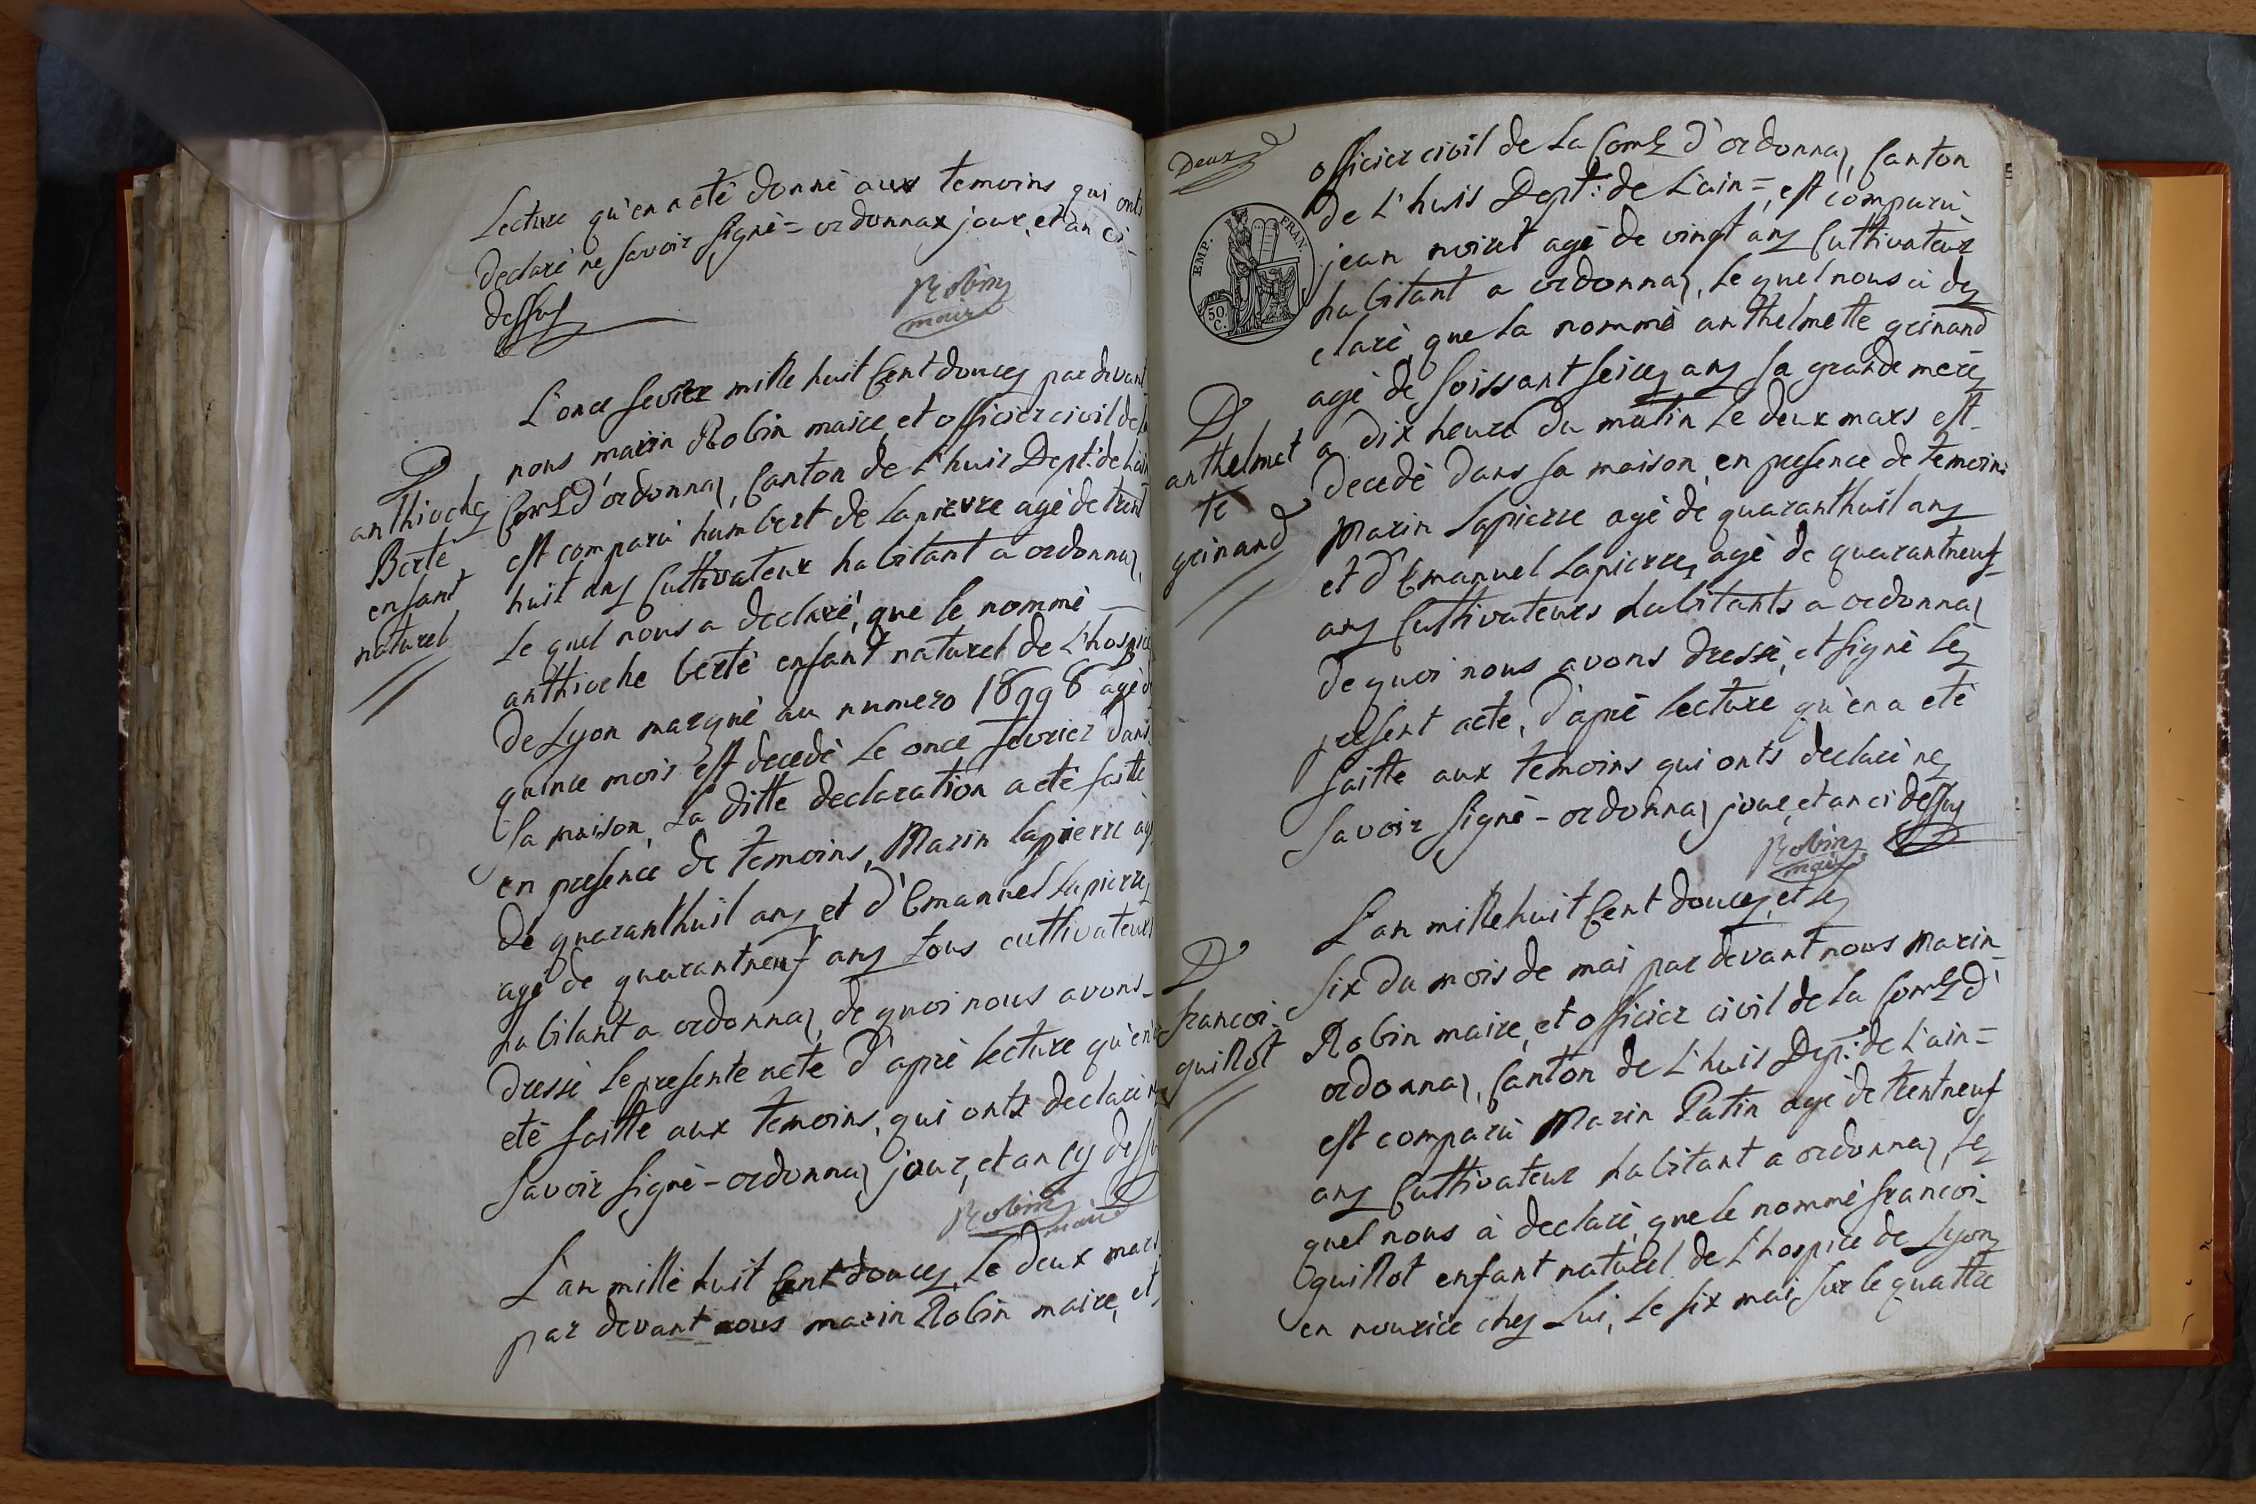 Lecture qu'en a eté donné aux temoins qui onts
declaré ne savoir signé = ordonnax jour, et an ci
dessus
Robin
maire
D
anthioche
Berté
enfant
naturel
L'once fevrier mille huit cent douces par devant
nous marin Robin maire et officier civil de la
Com.e d'ordonnas, canton de L'huis Dept: de L'ain
est comparu humbert de Lapierre agé de trent
huit ans cultivateur habitant a ordonnas,
Le quel nous a declaré, que le nommé
anthioche berté enfant naturel de L'hospice
de Lyon marqué au numero 18998 agé de
quince mois est decedé Le once fevrier dans
sa maison, La ditte declaration a eté faitte
en presence de temoins, Marin Lapierre agé
de quaranthuit ans, et d'Emanuel Lapierre
agé de quarantneuf ans tous cultivateurs
habitant a ordonnas, de quoi nous avons
dressé le presente acte d'aprè lecture qu'en a
eté faitte aux temoins, qui onts declaré ne
savoir signé - ordonnas jour, et an cy dessus
Robin
maire
L'an mille huit cent douces, Le deux mars
par devant nous marin Robin maire, et
Deux
EMP. FRAN.
50 C.
officier civil de La Com.e d'ordonnas, Canton
de L'huis Dept: de L'ain =, est comparu
jean noiret agé de vingt ans Cultivateur
habitant a ordonnas, Le quel nous à de
claré, que la nommé anthelmette guinand
agé de soissant seices ans sa grande mere
D
anthelmet
te
guinand
a dix heure du matin Le deux mars est
decedé dans sa maison, en presence de temoins
Marin Lapierre agé de quaranthuit ans
et d'Emanuel Lapierre, agé de quarantneuf
ans Cultivateurs habitants a ordonnas
de quoi nous avons dressé, et signé Le
present acte, d'aprè lecture qu'en a eté
faitte aux temoins qui onts declaré ne
savoir signé - ordonnas jour, et an ci dessus
Robin
maire
D
francoi
quillot
L'an mille huit cent douces, et Le
six du mois de mai par devant nous marin
Robin maire, et officier civil de La Com.e d'
ordonnas, Canton de L'huis Dept: de L'ain =
est comparu Marin Patin agé de trentneuf
ans Cultivateur habitant a ordonnas, Le
quel nous à declaré, que le nommé francoi
quillot enfant naturel de L'hospice de Lyon
en nourice ches Lui, Le six mai sur le quattre